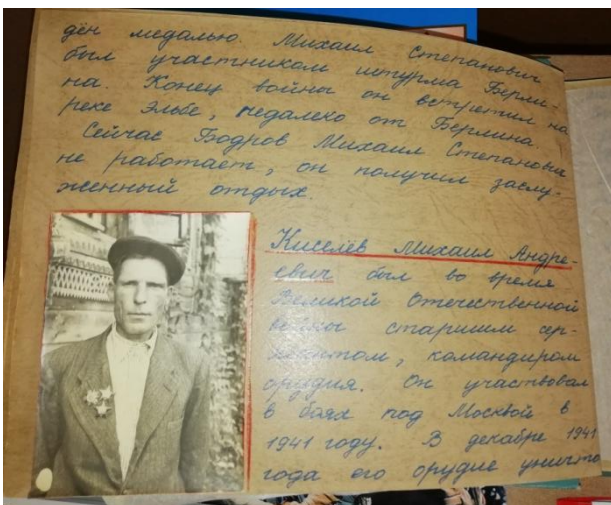 дён медалью. Михаил Степанович
был участником штурма Берли-
на. Конец войны он встретил на
реке Эльбе, недалеко от Берлина.
Сейчас Бодров Михаил Степанович
не работает, он получил заслу-
женный отдых.
Киселев Михаил Андре-
евич был во время
Великой Отечественной
войны старшим сер-
жантом, командиром
орудия. Он участвовал
в боях под Москвой в
1941 году. В декабре 1941
года его орудие уничто